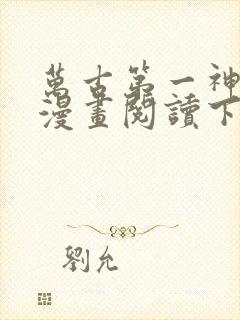 萬古第一神
漫畫閱讀下
劉允